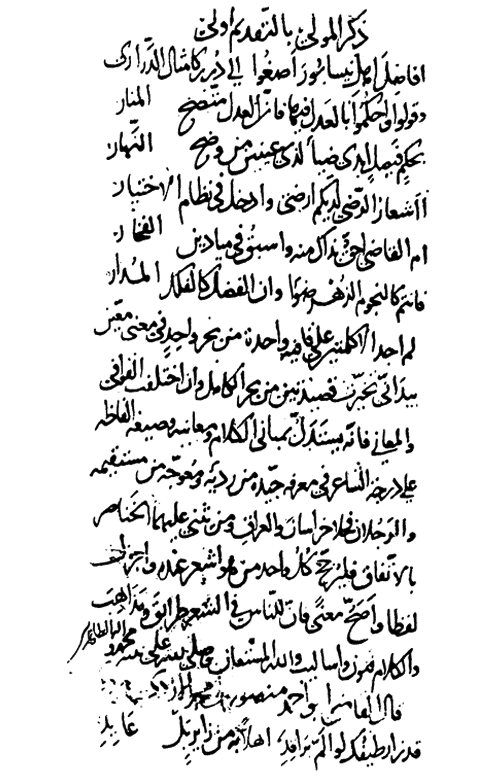 ذكر المولى بالتقديم اولى
افاضل اهل نيسابور اصغوا الى درر كامثال الدراري
وقولوا واحكموا بالعدل فيها فان العدل متضح المنار
بحكم فيصل ابدى ضيا لذي عينين من وضح النهار
ااشعار الرضي لديكم ارضى وادخل في نظام الاختيار
ام القاضي احق بذاك منه واسبق في ميادين الفخار
فانتم كالنجوم الزهر ضوا وان الفضل كالفلك المدار
لم اجد الا كلمتين على قافية واحدة من بحر واحد في معنى معين
بيد اني تخيرت قصيدتين من بحر الكامل وان اختلفت القوافي
والمعاني فانه يستدل بمباني الكلام ومعانيه وصيغه الفاظه
على درجة الشاعر في معرفة جيده من رديه ومعوجه من مستقيمه
والرجلان فحلا خراسان والعراق ومن تثنى عليهما الخناصر
بالاتفاق فليرجح كل واحد من هو اشعر عنده واجزل
لفظا واصح معنى فان للناس في الشعر طرايق ومذاهب
والكلام فنون واساليب والله المستعان وصلى الله على نبيه محمد واله الطاهرين
قال القاضي ابو احمد منصور بن محمد الازدي
قد زار طيفك لو الم براقد اهلا به من زاير عايد